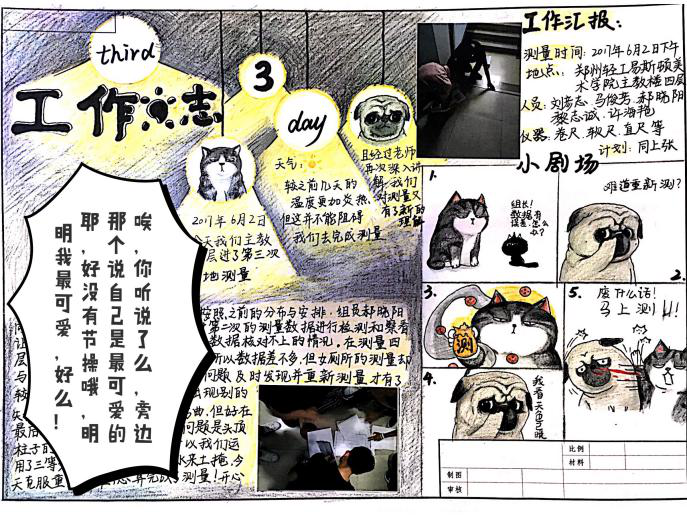 third
3
day
工作日志
2017年6月2日
今天我们主教
层进了第三次
地测量
天气：
较之前几天的
温度更加炎热,
但这并不能阻碍
我们去完成测量
且经过老师
再次深入讲
解,我们
对测量又
有了新的
理解
唉,你听说了么,旁边
那个说自己是最可爱的
耶,好没有节操哦,明
明我最可爱,好么!
按照之前的分布与安排,组员郝晓阳
第二次的测量数据进行检测和察看
数据核对不上的情况。在测量四
所以数据差不多,但女厕所的测量却
问题及时发现并重新测量才有了
出现别的
曲,但好在
问题是头顶
以我们运
水来土掩,今
用了三等
天克服重
完成了测量!开心
工作汇报:
测量时间:2017年6月2日下午
地点:郑州轻工易斯顿美
术学院主教楼四层
人员:刘芳志 马俊芳 郝晓阳
黎志诚、许海艳
仪器:卷尺、软尺、直尺等
计划:同上张
小剧场
1.
组长!
数据有
误差,怎么
办?
难道重新测?
2.
3.
测
4.
我看天色已晚
5.
废什么话!
马上测!!!
比例
材料
制图
审核